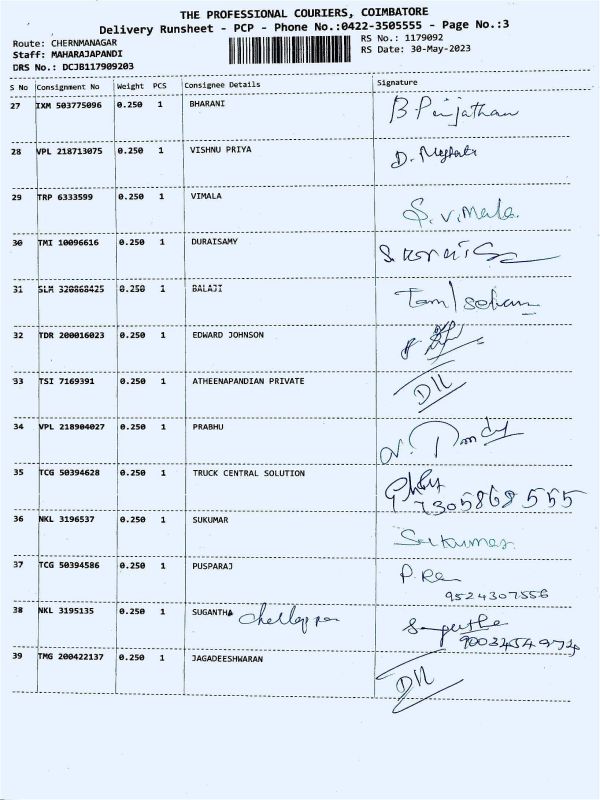 THE PROFESSIONAL COURIERS, COIMBATORE
Delivery Runsheet - PCP - Phone No.:0422-3505555 - Page No.:3
Route: CHERNMANAGAR
RS No.: 1179092
Staff: MAHARAJAPANDI
RS Date: 30-May-2023
DRS No.: DCJB117909203
S No Consignment No Weight PCS Consignee Details Signature
27 IXM 503775096 0.250 1 BHARANI
28 VPL 218713075 0.250 1 VISHNU PRIYA
29 TRP 6333599 0.250 1 VIMALA S. Vimala.
30 TMI 10096616 0.250 1 DURAISAMY
31 SLM 320868425 0.250 1 BALAJI
32 TDR 200016023 0.250 1 EDWARD JOHNSON
33 TSI 7169391 0.250 1 ATHEENAPANDIAN PRIVATE
34 VPL 218904027 0.250 1 PRABHU
35 TCG 50394628 0.250 1 TRUCK CENTRAL SOLUTION
7305868555
36 NKL 3196537 0.250 1 SUKUMAR Sukumar
37 TCG 50394586 0.250 1 PUSPARAJ
9524307556
38 NKL 3195135 0.250 1 SUGANTHA
9003454974
39 TMG 200422137 0.250 1 JAGADEESHWARAN